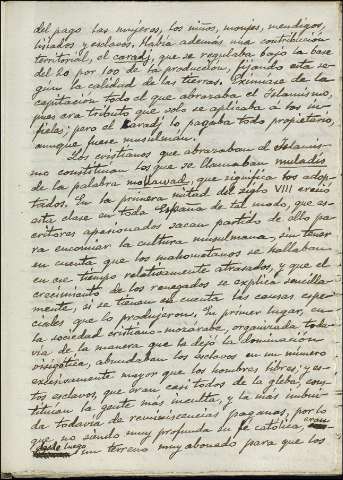 del pago las mujeres, los niños, monjes, mendigos,
lisiados y esclavos. Había además una contribución
territorial, el caradj, que se regulaba bajo la base
del 20 por 100 de la producción, fijando esta se-
gún la calidad de las tierras. Eximíase de la
capitación todo el que abrazaba el Islamismo,
pues era tributo que solo se aplicaba á los in-
fieles; pero el Caradj lo pagaba todo propietario,
aunque fuese musulmán.
Los cristianos que abrazaban el Islamis-
mo constituían los que se llamaban muladís
de la palabra mowawad, que significa los adop-
tados. En la primera mitad del siglo VIII creció
esta clase en toda España de tal modo, que es-
critores apasionados sacan partido de ello pa-
ra encomiar la cultura musulmana, sin tener
en cuenta que los mahometanos se hallaban
en ese tiempo relativamente atrasados, y que el
crecimiento de los renegados se explica sencilla-
mente, si se tienen en cuenta las causas espe-
ciales que lo produjeron. En primer lugar, en
la sociedad cristiano-mozárabe, organizada toda-
vía de la manera que la dejó la dominación
visigótica, abundaban los esclavos en un número
excesivamente mayor que los hombres libres; y es-
tos esclavos, que eran casi todos de la gleba, cons-
tituían la gente más inculta, y la más imbui-
da todavía de reminiscencias paganas, por lo
que, no siendo muy profunda su fe católica, eran
desde luego un terreno muy abonado para que los